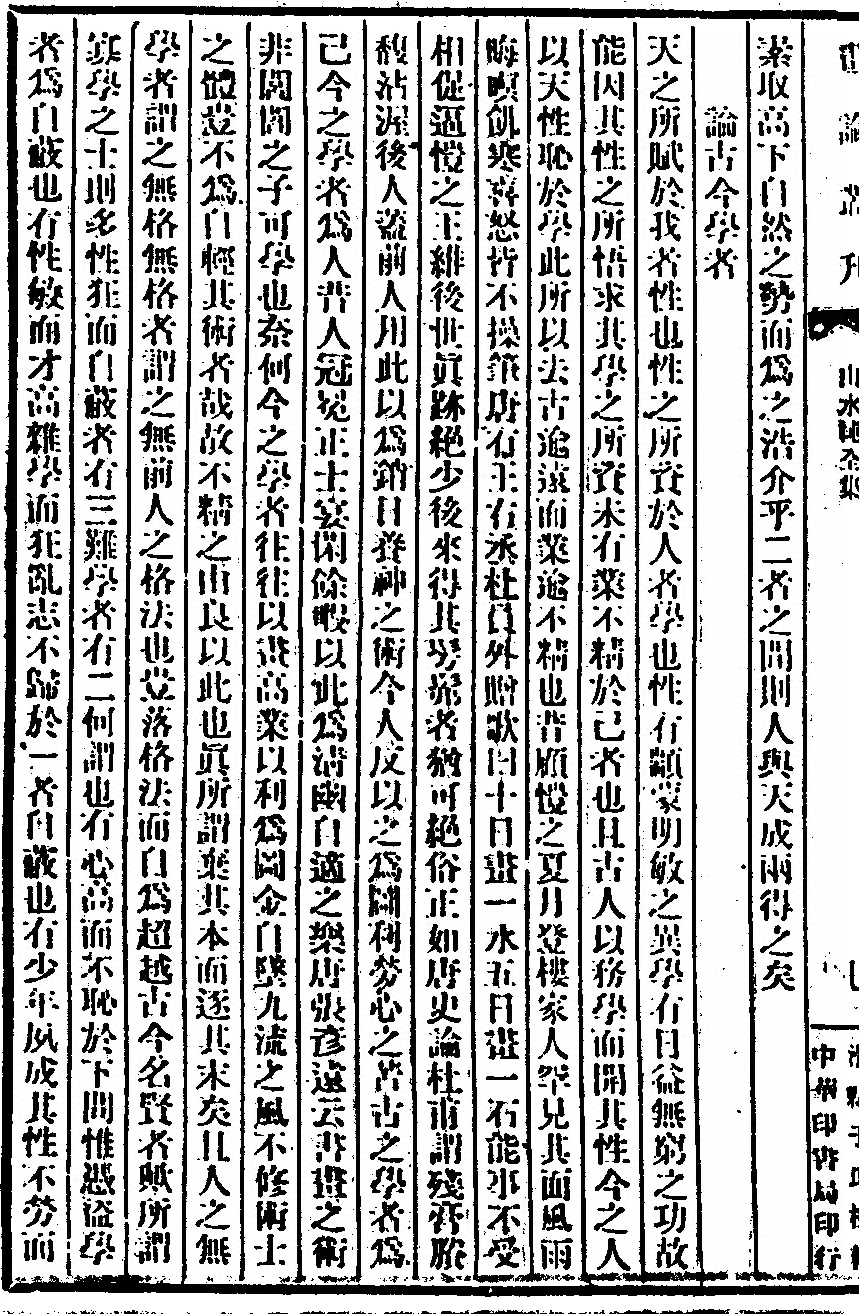 畫論叢刊
山水純全集
中華印書局印行
素取高下自然之勢而爲之浩介乎二者之間則人與天成兩得之矣
論古今學者
天之所賦於我者性也性之所資於人者學也性有顓蒙明敏之異學有日益無窮之功故
能因其性之所悟求其學之所資未有業不精於己者也且古人以務學而開其性今之人
以天性恥於學此所以法古逾遠而業逾不精也昔顧愷之夏月登樓家人罕見其面風雨
晦暝飢寒喜怒皆不操筆唐有王右丞杜員外贈歌曰十日畫一水五日畫一石能事不受
相促逼愷之王維後世眞跡絕少後來得其髣髴者猶可絕俗正如唐史論杜甫謂殘膏賸
馥沾渥後人蓋前人用此以爲銷日養神之術今人反以之爲圖利勞心之苦古之學者爲
己今之學者爲人昔人冠冕正士宴閑餘暇以此爲淸幽自適之樂唐張彥遠云書畫之術
非閭閻之子可學也奈何今之學者往往以畫高業以利爲圖金自墜九流之風不修術士
之體豈不爲自輕其術者哉故不精之由良以此也眞所謂棄其本而逐其末矣且人之無
學者謂之無格無格者謂之無前人之格法也豈落格法而自爲超越古今名賢者歟所謂
寡學之士則多性狂而自蔽者有三難學者有二何謂也有心高而不恥於下問惟憑盜學
者爲自蔽也有性敏而才高雜學而狂亂志不歸於一者自蔽也有少年夙成其性不勞而